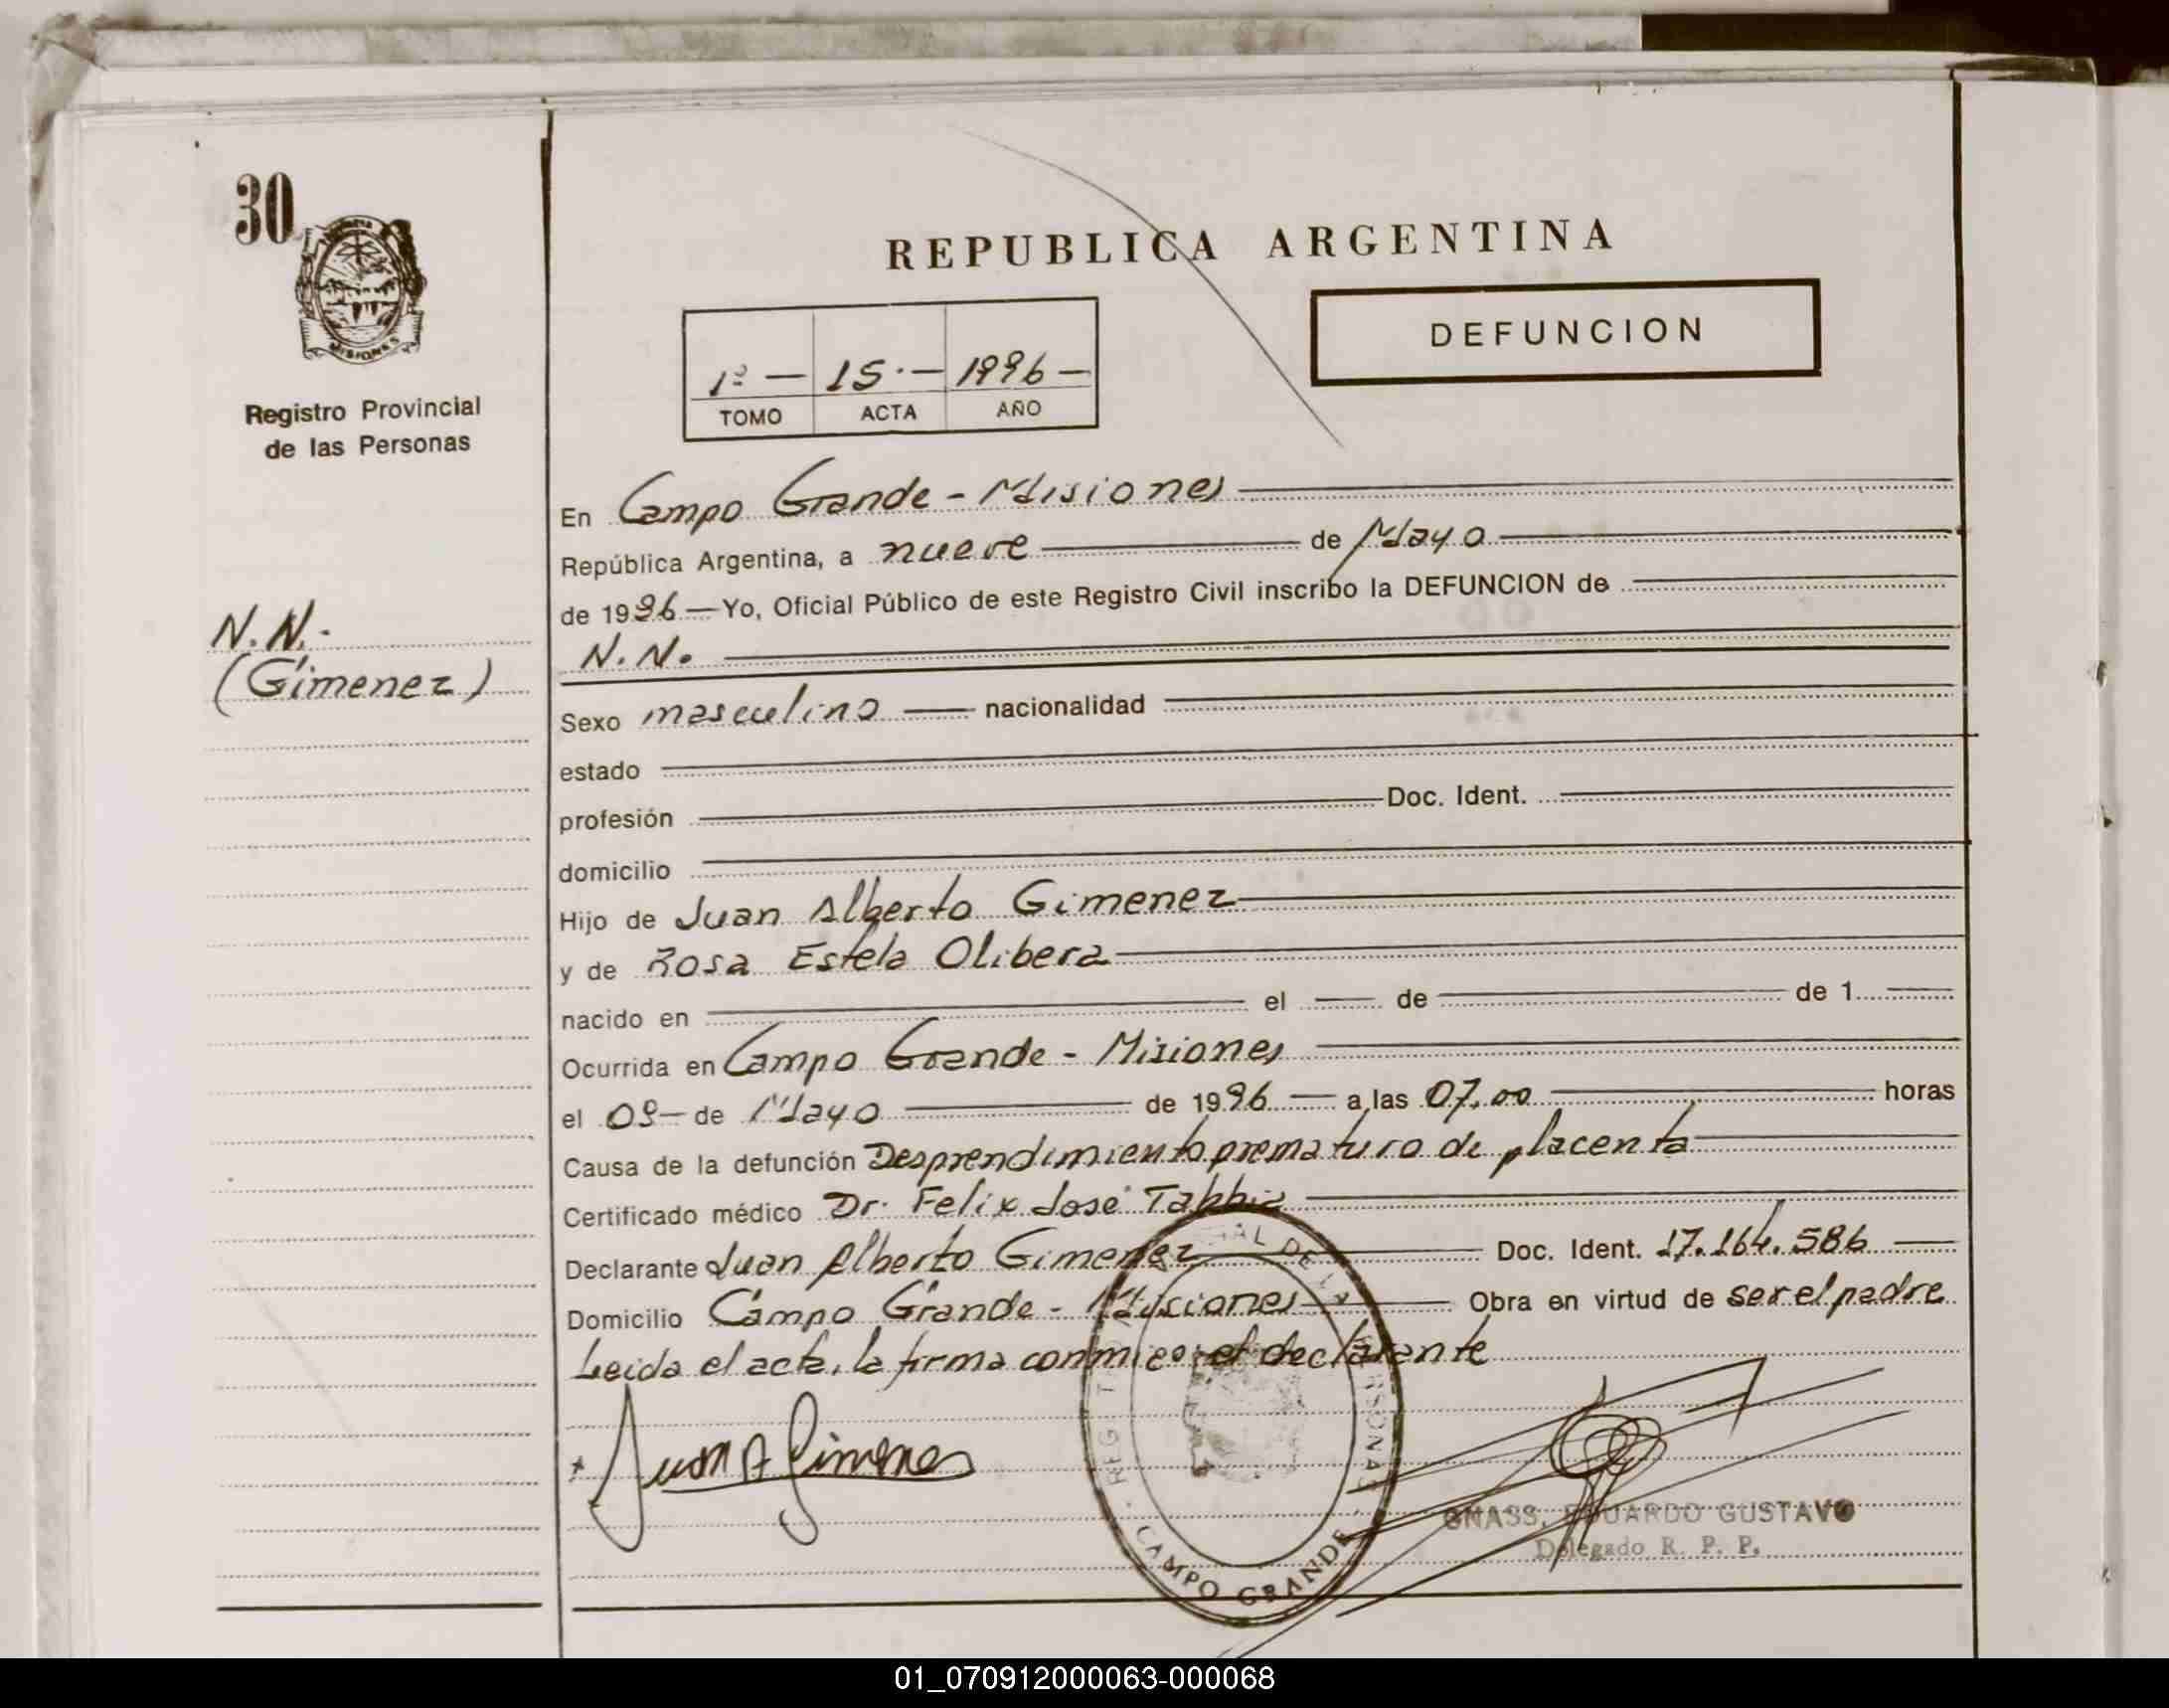 30
MISIONES
Registro Provincial
de las Personas
N.N.-
(Gimenez)
REPUBLICA ARGENTINA
1º — 15.— 1996 —
TOMO ACTA AÑO
DEFUNCION
En Campo Grande - Misiones
República Argentina, a nueve de Mayo
de 1996 — Yo, Oficial Público de este Registro Civil inscribo la DEFUNCION de
N.N.
Sexo masculino nacionalidad
estado
profesión Doc. Ident.
domicilio
Hijo de Juan Alberto Gimenez
y de Rosa Estela Olibera
nacido en el de de 1
Ocurrida en Campo Grande - Misiones
el 09 — de Mayo de 1996 — a las 07,00 horas
Causa de la defunción Desprendimiento prematuro de placenta
Certificado médico Dr. Felix José
Declarante Juan Alberto Gimenez Doc. Ident. 17.164.586
Domicilio Campo Grande - Misiones Obra en virtud de ser el padre
Leida el acta, la firma conmigo: el declarante
Juan A Gimenes
CAMPO GRANDE
GNASS, EDUARDO GUSTAVO
Delegado R. P. P.
01_070912000063-000068